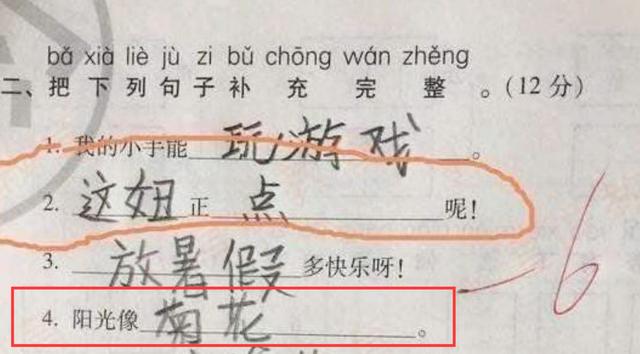 bǎ xià liè jù zi bǔ chōng wán zhěng
二、把下列句子补充完整。(12分)
1. 我的小手能玩游戏。
2. 这妞正点呢!
3. 放暑假多快乐呀!
-6
4. 阳光像菊花。